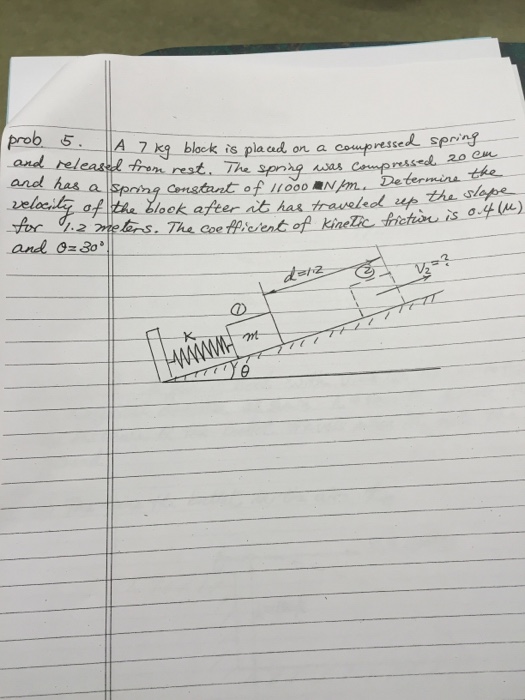 prob 5. A 7 kg block is placed on a compressed spring
and released from rest. The spring was compressed 20 cm
and has a spring constant of 11000 N/m. Determine the
velocity of the block after it has traveled up the slope
for 1.2 meters. The coefficient of kinetic friction is 0.4 (μ)
and θ=30°.
d=1.2
②
V₂=?
①
K
m
θ